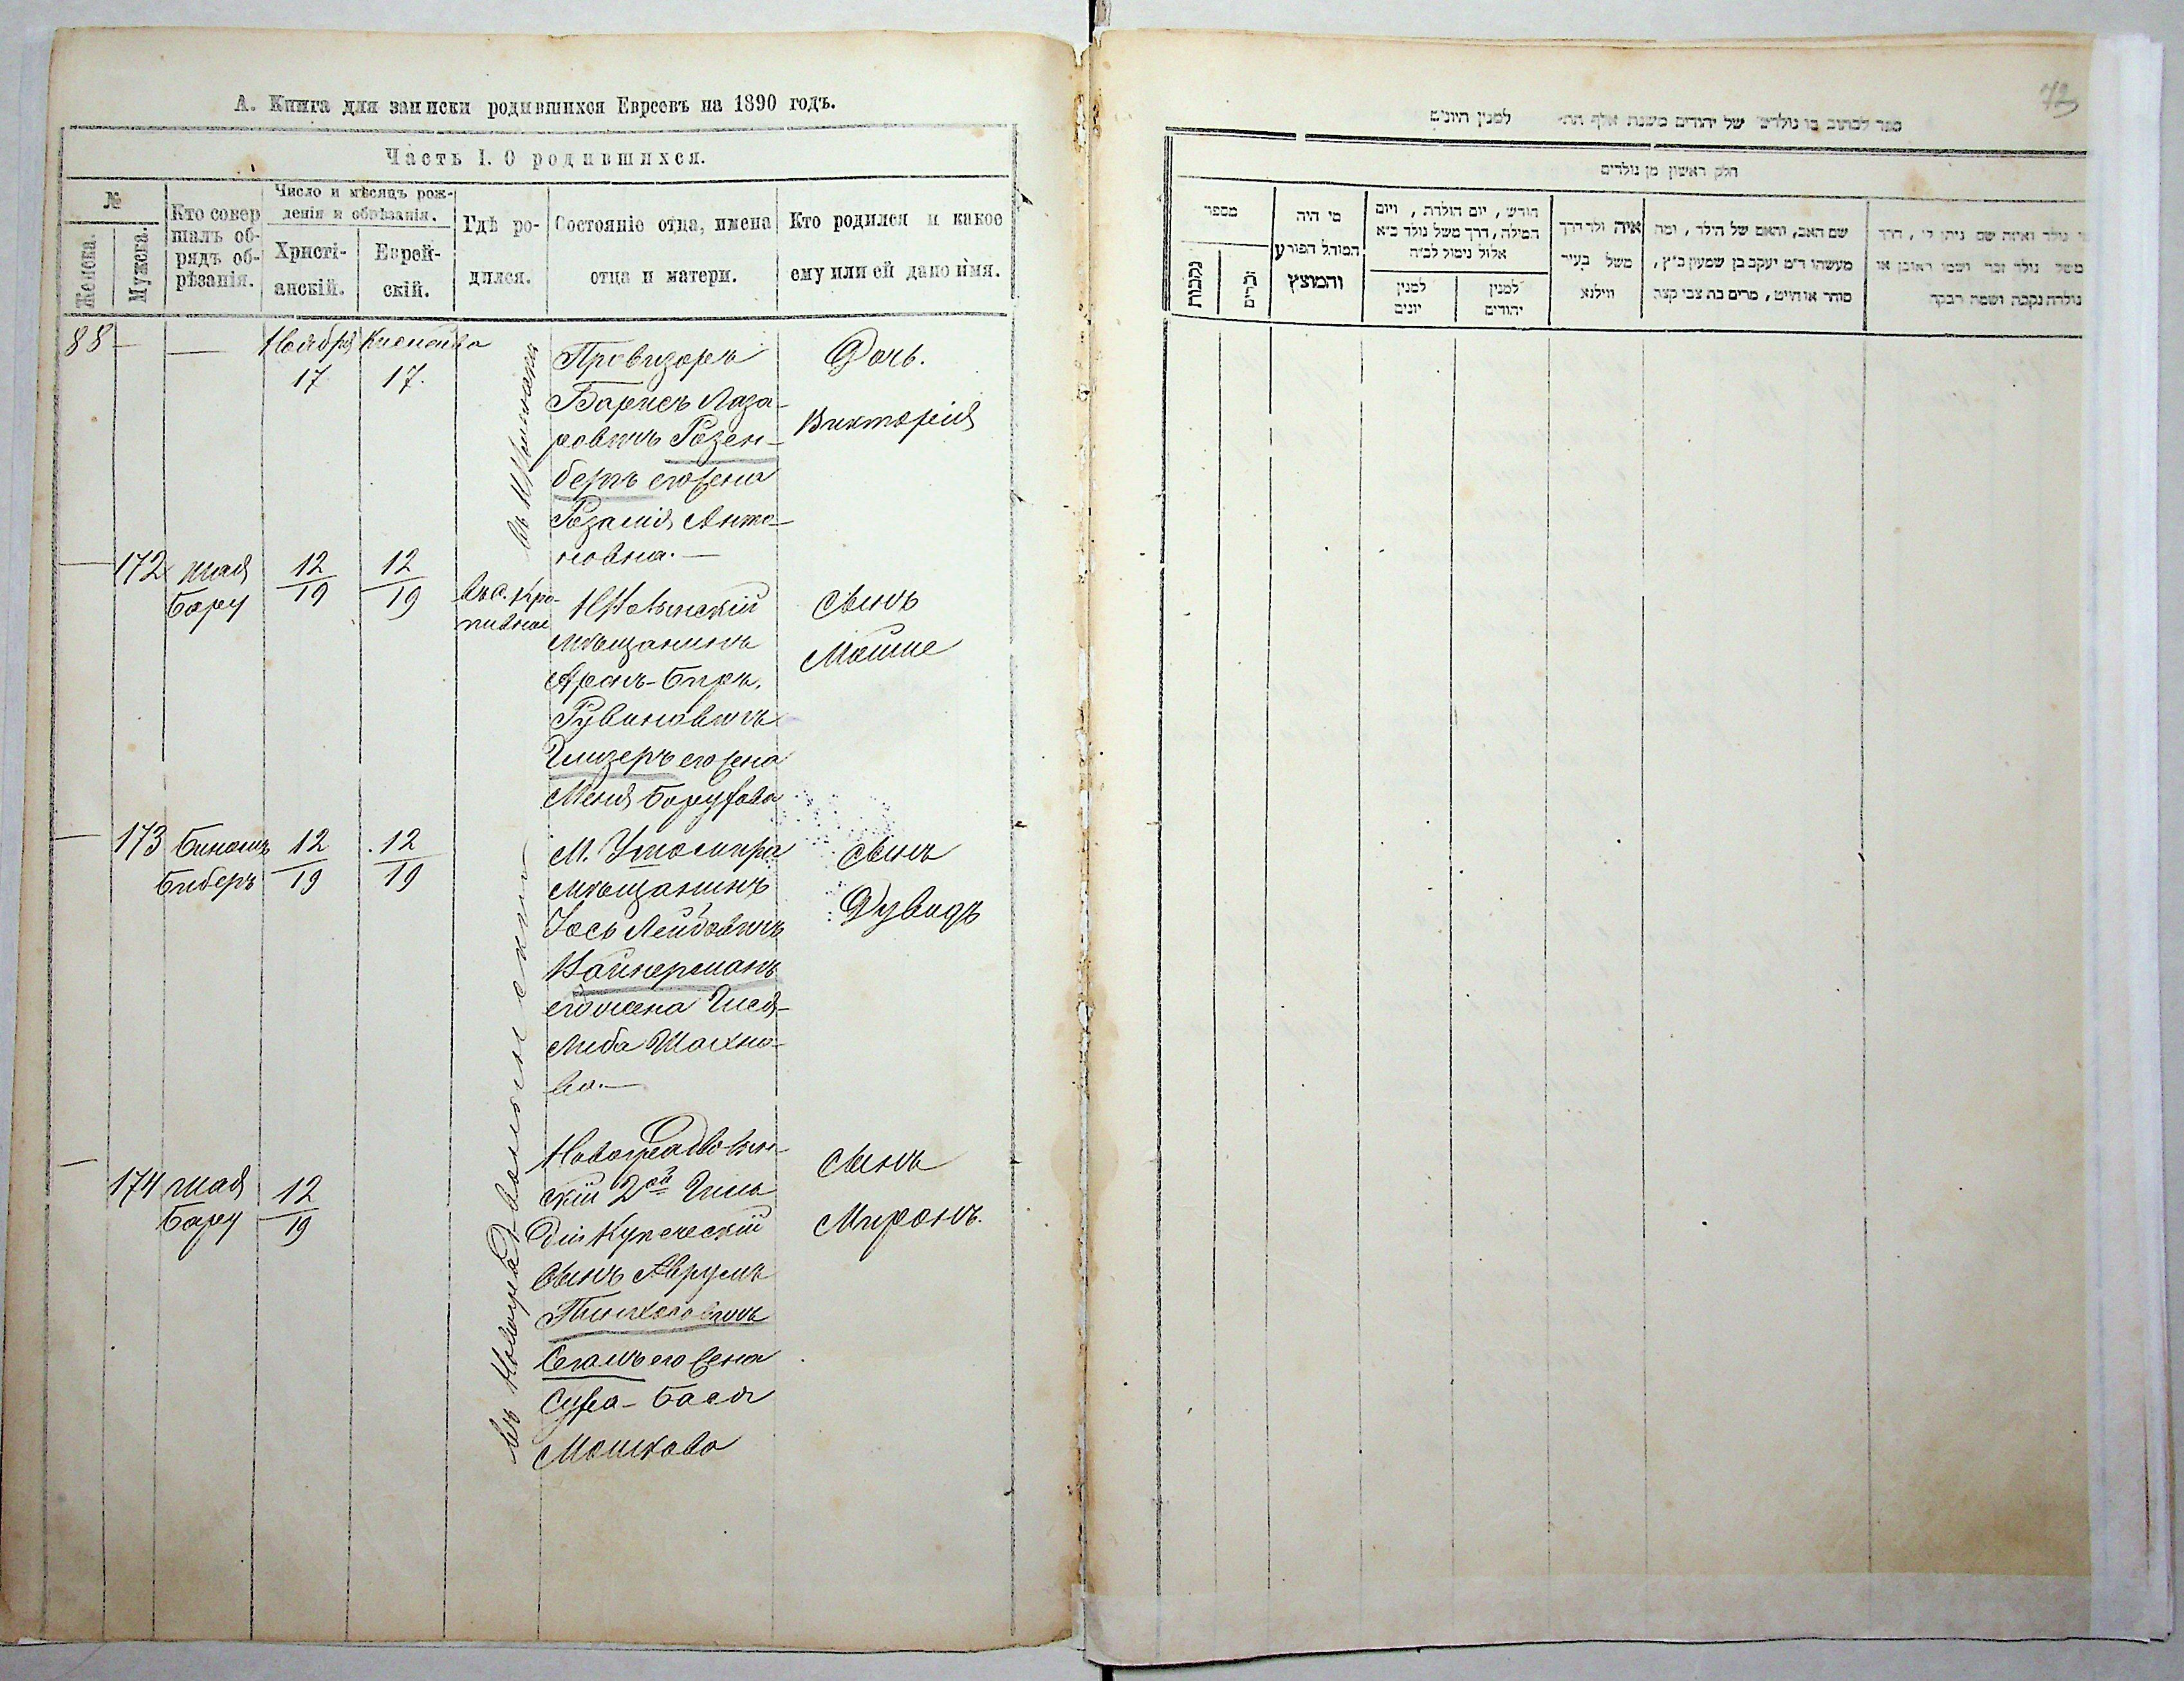 А. Книга для записки родившихся Евреевъ на 1890 годъ.
Часть I. О родившихся.
№
Женска.
Мужска.
Кто совер
шалъ об-
рядъ об-
рѣзанія.
Число и мѣсяцъ рож-
денія и обрѣзанія.
Христі-
анскій.
Еврей-
скій.
Гдѣ ро-
дился.
Состояніе отца, имена
отца и матери.
Кто родился и какое
ему или ей дано имя.
88 — —
Ноября
17
Кислива
17.
Провизоръ
Борисъ Лаза-
ровичъ Розен-
бергъ его жена
Розалія Анто-
новна. —
Дочь.
Викторія
— 172
Шая
Бару
12
19
12
19
въ с. Кро-
пивнѣ
мѣщанинъ
Аронъ-Беръ
Рувиновичъ
Глизеръ его жена
Меня Борухова
Сынъ
Мошие
— 173
Биномъ
Биберъ
12
19
12
19
М.
мѣщанинъ
Іось Лейбовичъ
Вайнерманъ
его жена Гися-
Либа Шахно-
ва. —
Сынъ
Дувидъ
— 174
Шая
Бару
12
19
въ Новоградволынскѣ
Новоградволын-
скій 2ой Гиль
діи Купеческій
сынъ Аврумъ
Пинхосовичъ
Сегалъ его жена
Сура-Бася
Мошкова
Сынъ
Миронъ.
72
ספר לכתוב בו נולדים של יהודים משנת אלף תת למנין היונים
חלק ראשון מן נולדים
מספר
נקבות
זכרים
מי היה
המוהל הפורע
והמוצץ
חודש, יום הולדת, ויום
המילה, דרך משל נולד כ״א
אלול נימול לכ״ה
למנין
יונים
למנין
יהודים
איה ולד דרך
משל בעיר
ווילנא
שם האב, והאם של הילד, ומה
מעשהו ד״מ יעקב בן שמעון כ״ץ,
סוחר או חייט, מרים בת צבי קצה
נולד ואיזה שם ניתן לו, דרך
משל נולד זכר ושמו ראובן או
נולדה נקבה ושמה רבקה